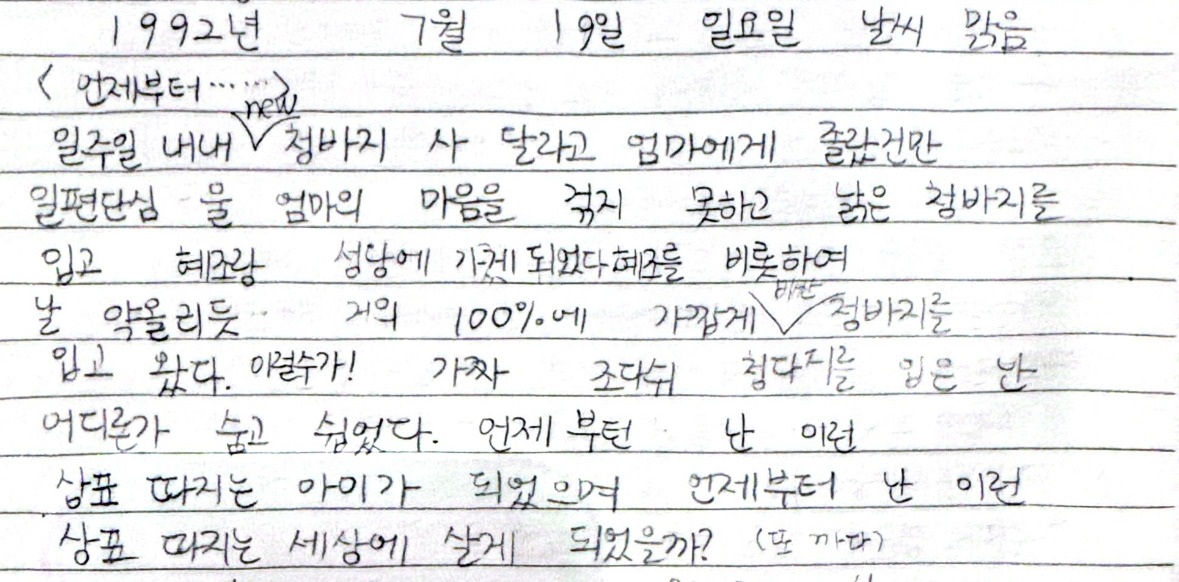 1992년 7월 19일 일요일 날씨 맑음
< 언제부터…… >
new
일주일 내내 ∨ 청바지 사 달라고 엄마에게 졸랐건만
일편단심 울 엄마의 마음을 꺾지 못하고 낡은 청바지를
입고 혜조랑 성당에 가게 되었다 혜조를 비롯하여
비싼
날 약올리듯 거의 100%에 가깝게 ∨ 청바지를
입고 왔다. 이럴수가! 가짜 조다쉬 청바지를 입은 난
어디론가 숨고 싶었다. 언제 부턴 난 이런
상표 따지는 아이가 되었으며 언제부터 난 이런
상표 따지는 세상에 살게 되었을까?